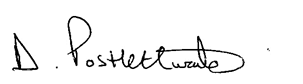 D. Postlethwaite